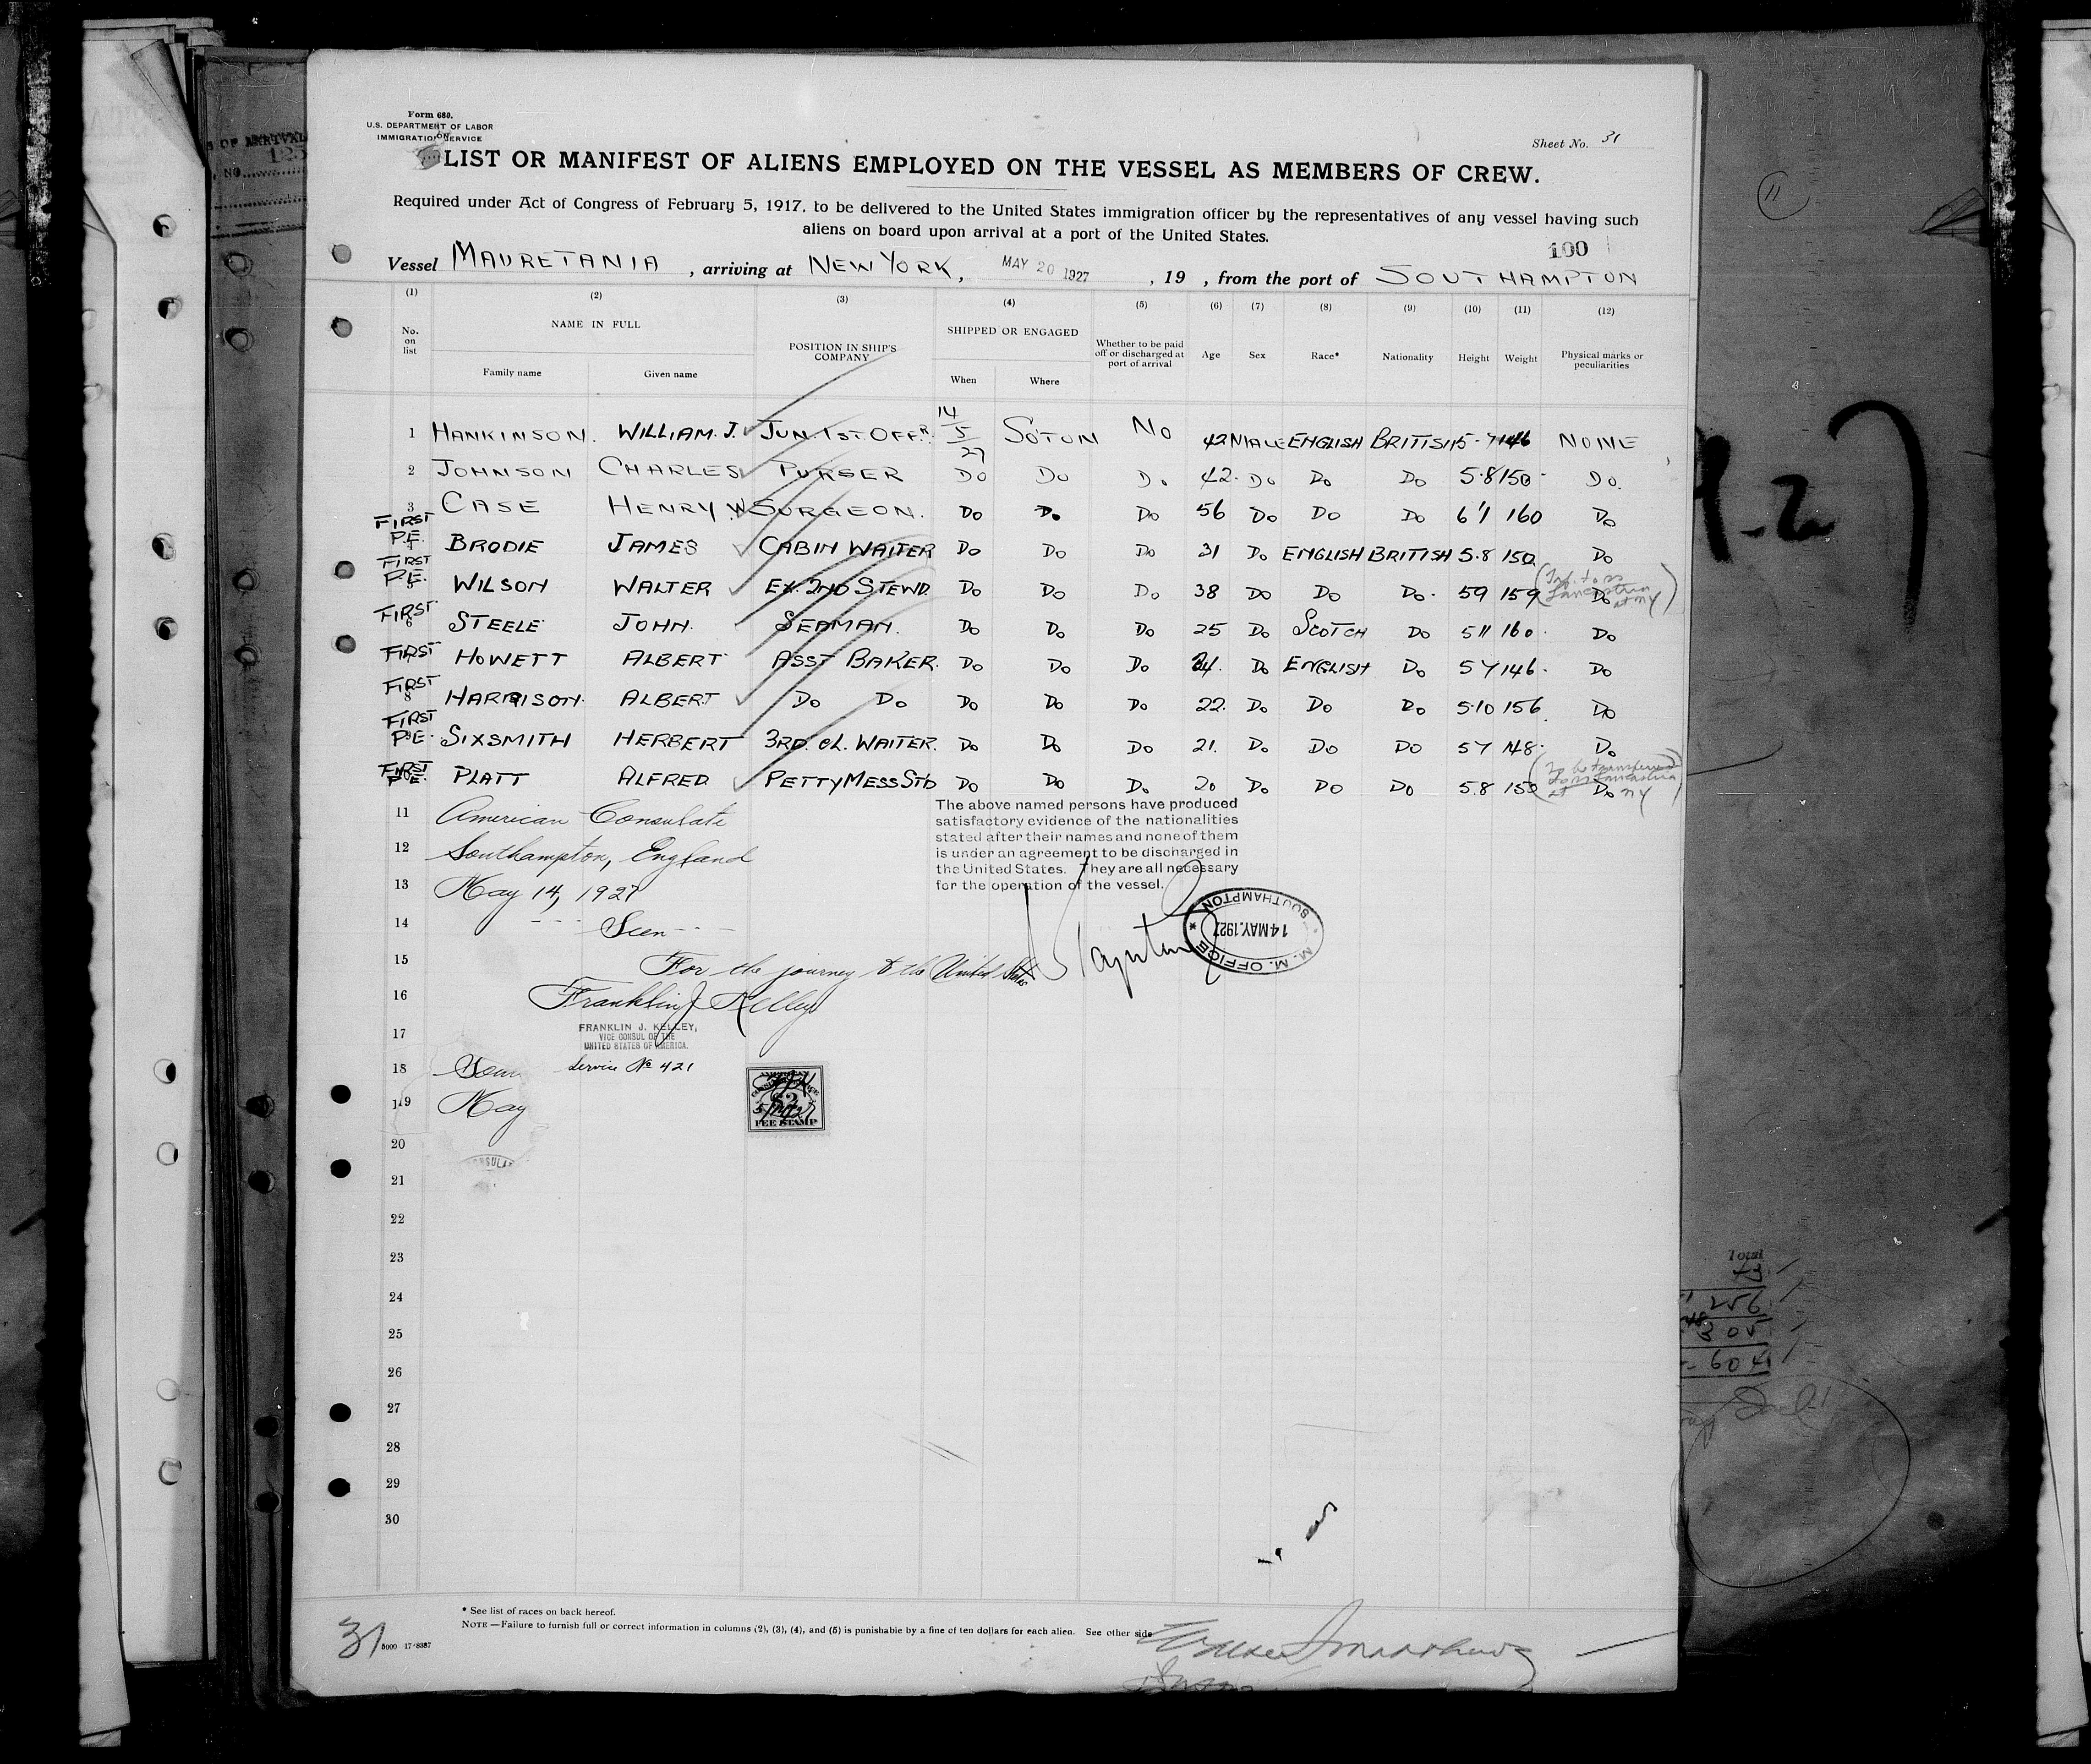 Form 680.
U.S. DEPARTMENT OF LABOR
IMMIGRATION SERVICE
Sheet No. 31
LIST OR MANIFEST OF ALIENS EMPLOYED ON THE VESSEL AS MEMBERS OF CREW.
Required under Act of Congress of February 5, 1917, to be delivered to the United States immigration officer by the representatives of any vessel having such
aliens on board upon arrival at a port of the United States.
100
Vessel MAURETANIA, arriving at NEW YORK, MAY 20 1927, 19 , from the port of SOUTHAMPTON
(1) (2) (3) (4) (5) (6) (7) (8) (9) (10) (11) (12)
No. on list NAME IN FULL POSITION IN SHIP'S COMPANY SHIPPED OR ENGAGED Whether to be paid off or discharged at port of arrival Age Sex Race* Nationality Height Weight Physical marks or peculiarities
Family name Given name When Where
1 HANKINSON. WILLIAM. J. JUN. 1ST OFFR. 14/5/27 SOTON NO 42 MALE ENGLISH BRITISH 5-7 146 NONE
2 JOHNSON CHARLES PURSER DO DO DO 42. DO DO DO 5.8 150 DO.
3 CASE HENRY W SURGEON. DO DO DO 56 DO DO DO 6'1 160 DO
FIRST P.E. BRODIE JAMES CABIN WAITER DO DO DO 31 DO ENGLISH BRITISH 5.8 150 DO
FIRST P.E. WILSON WALTER EX. 2ND STEWD. DO DO DO 38 DO DO DO. 59 159 DO
Lancastria at NY
FIRST 6 STEELE JOHN. SEAMAN. DO DO DO 25 DO SCOTCH DO 5 11 160. DO
FIRST HOWETT ALBERT ASST BAKER. DO DO DO 24. DO ENGLISH DO 57 146. DO
FIRST 8 HARRISON. ALBERT DO DO DO DO DO 22. DO DO DO 5.10 156 DO
FIRST P.E. SIXSMITH HERBERT 3RD. CL. WAITER. DO DO DO 21. DO DO DO 57 148. DO
FIRST P.E. PLATT ALFRED. PETTY MESS STD DO DO DO 20 DO DO DO 5.8 150 DO
To be transferred to ss Lancastria at NY
11 American Consulate
12 Southampton, England
13 May 14, 1927
The above named persons have produced
satisfactory evidence of the nationalities
stated after their names and none of them
is under an agreement to be discharged in
the United States. They are all necessary
for the operation of the vessel.
M. M. OFFICE
14 MAY.1927
SOUTHAMPTON
14 --- Seen ---
15 For the journey to the United States
16 Franklin J Kelley
17 FRANKLIN J. KELLEY,
VICE CONSUL OF THE
UNITED STATES OF AMERICA.
18 Service No 421
19 May
FEE STAMP
20
21
22
23
24
25
26
27
28
29
30
Total
256
305
604
* See list of races on back hereof.
NOTE.—Failure to furnish full or correct information in columns (2), (3), (4), and (5) is punishable by a fine of ten dollars for each alien. See other side
31